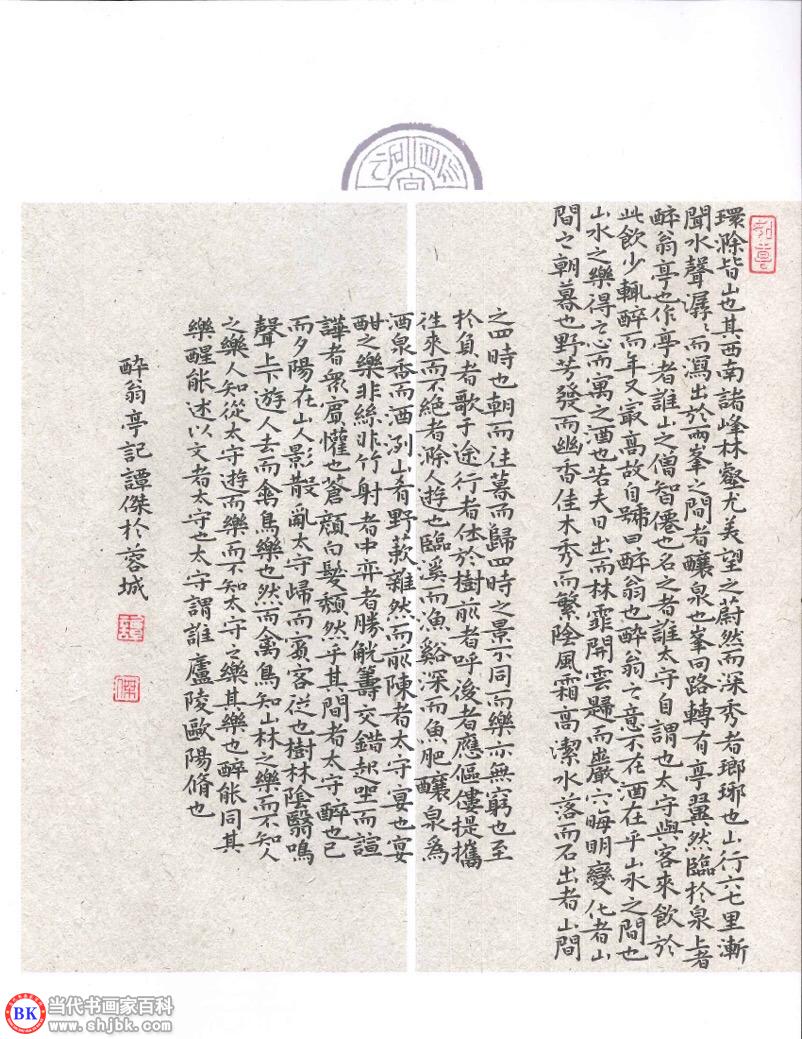 環滁皆山也其西南諸峰林壑尤美望之蔚然而深秀者瑯琊也山行六七里漸
聞水聲潺〻而瀉出於兩峯之間者釀泉也峯回路轉有亭翼然臨於泉上者
醉翁亭也作亭者誰山之僧智僊也名之者誰太守自謂也太守與客來飲於
此飲少輒醉而年又最高故自號曰醉翁也醉翁之意不在酒在乎山水之間也
山水之樂得之心而寓之酒也若夫日出而林霏開雲歸而巖穴晦明變化者山
間之朝暮也野芳發而幽香佳木秀而繁陰風霜高潔水落而石出者山間
之四時也朝而往暮而歸四時之景不同而樂亦無窮也至
於負者歌于途行者休於樹前者呼後者應傴僂提攜
往來而不絕者滁人遊也臨溪而漁谿深而魚肥釀泉爲
酒泉香而酒洌山肴野蔌雜然而前陳者太守宴也宴
酣之樂非絲非竹射者中弈者勝觥籌交錯起坐而諠
譁者衆賓懽也蒼顏白髮頹然乎其間者太守醉也已
而夕陽在山人影散亂太守歸而賓客從也樹林陰翳鳴
聲上下遊人去而禽鳥樂也然而禽鳥知山林之樂而不知人
之樂人知從太守遊而樂而不知太守之樂其樂也醉能同其
樂醒能述以文者太守也太守謂誰廬陵歐陽脩也
醉翁亭記譚傑於蓉城
BK 当代书画家百科
www.shjbk.com